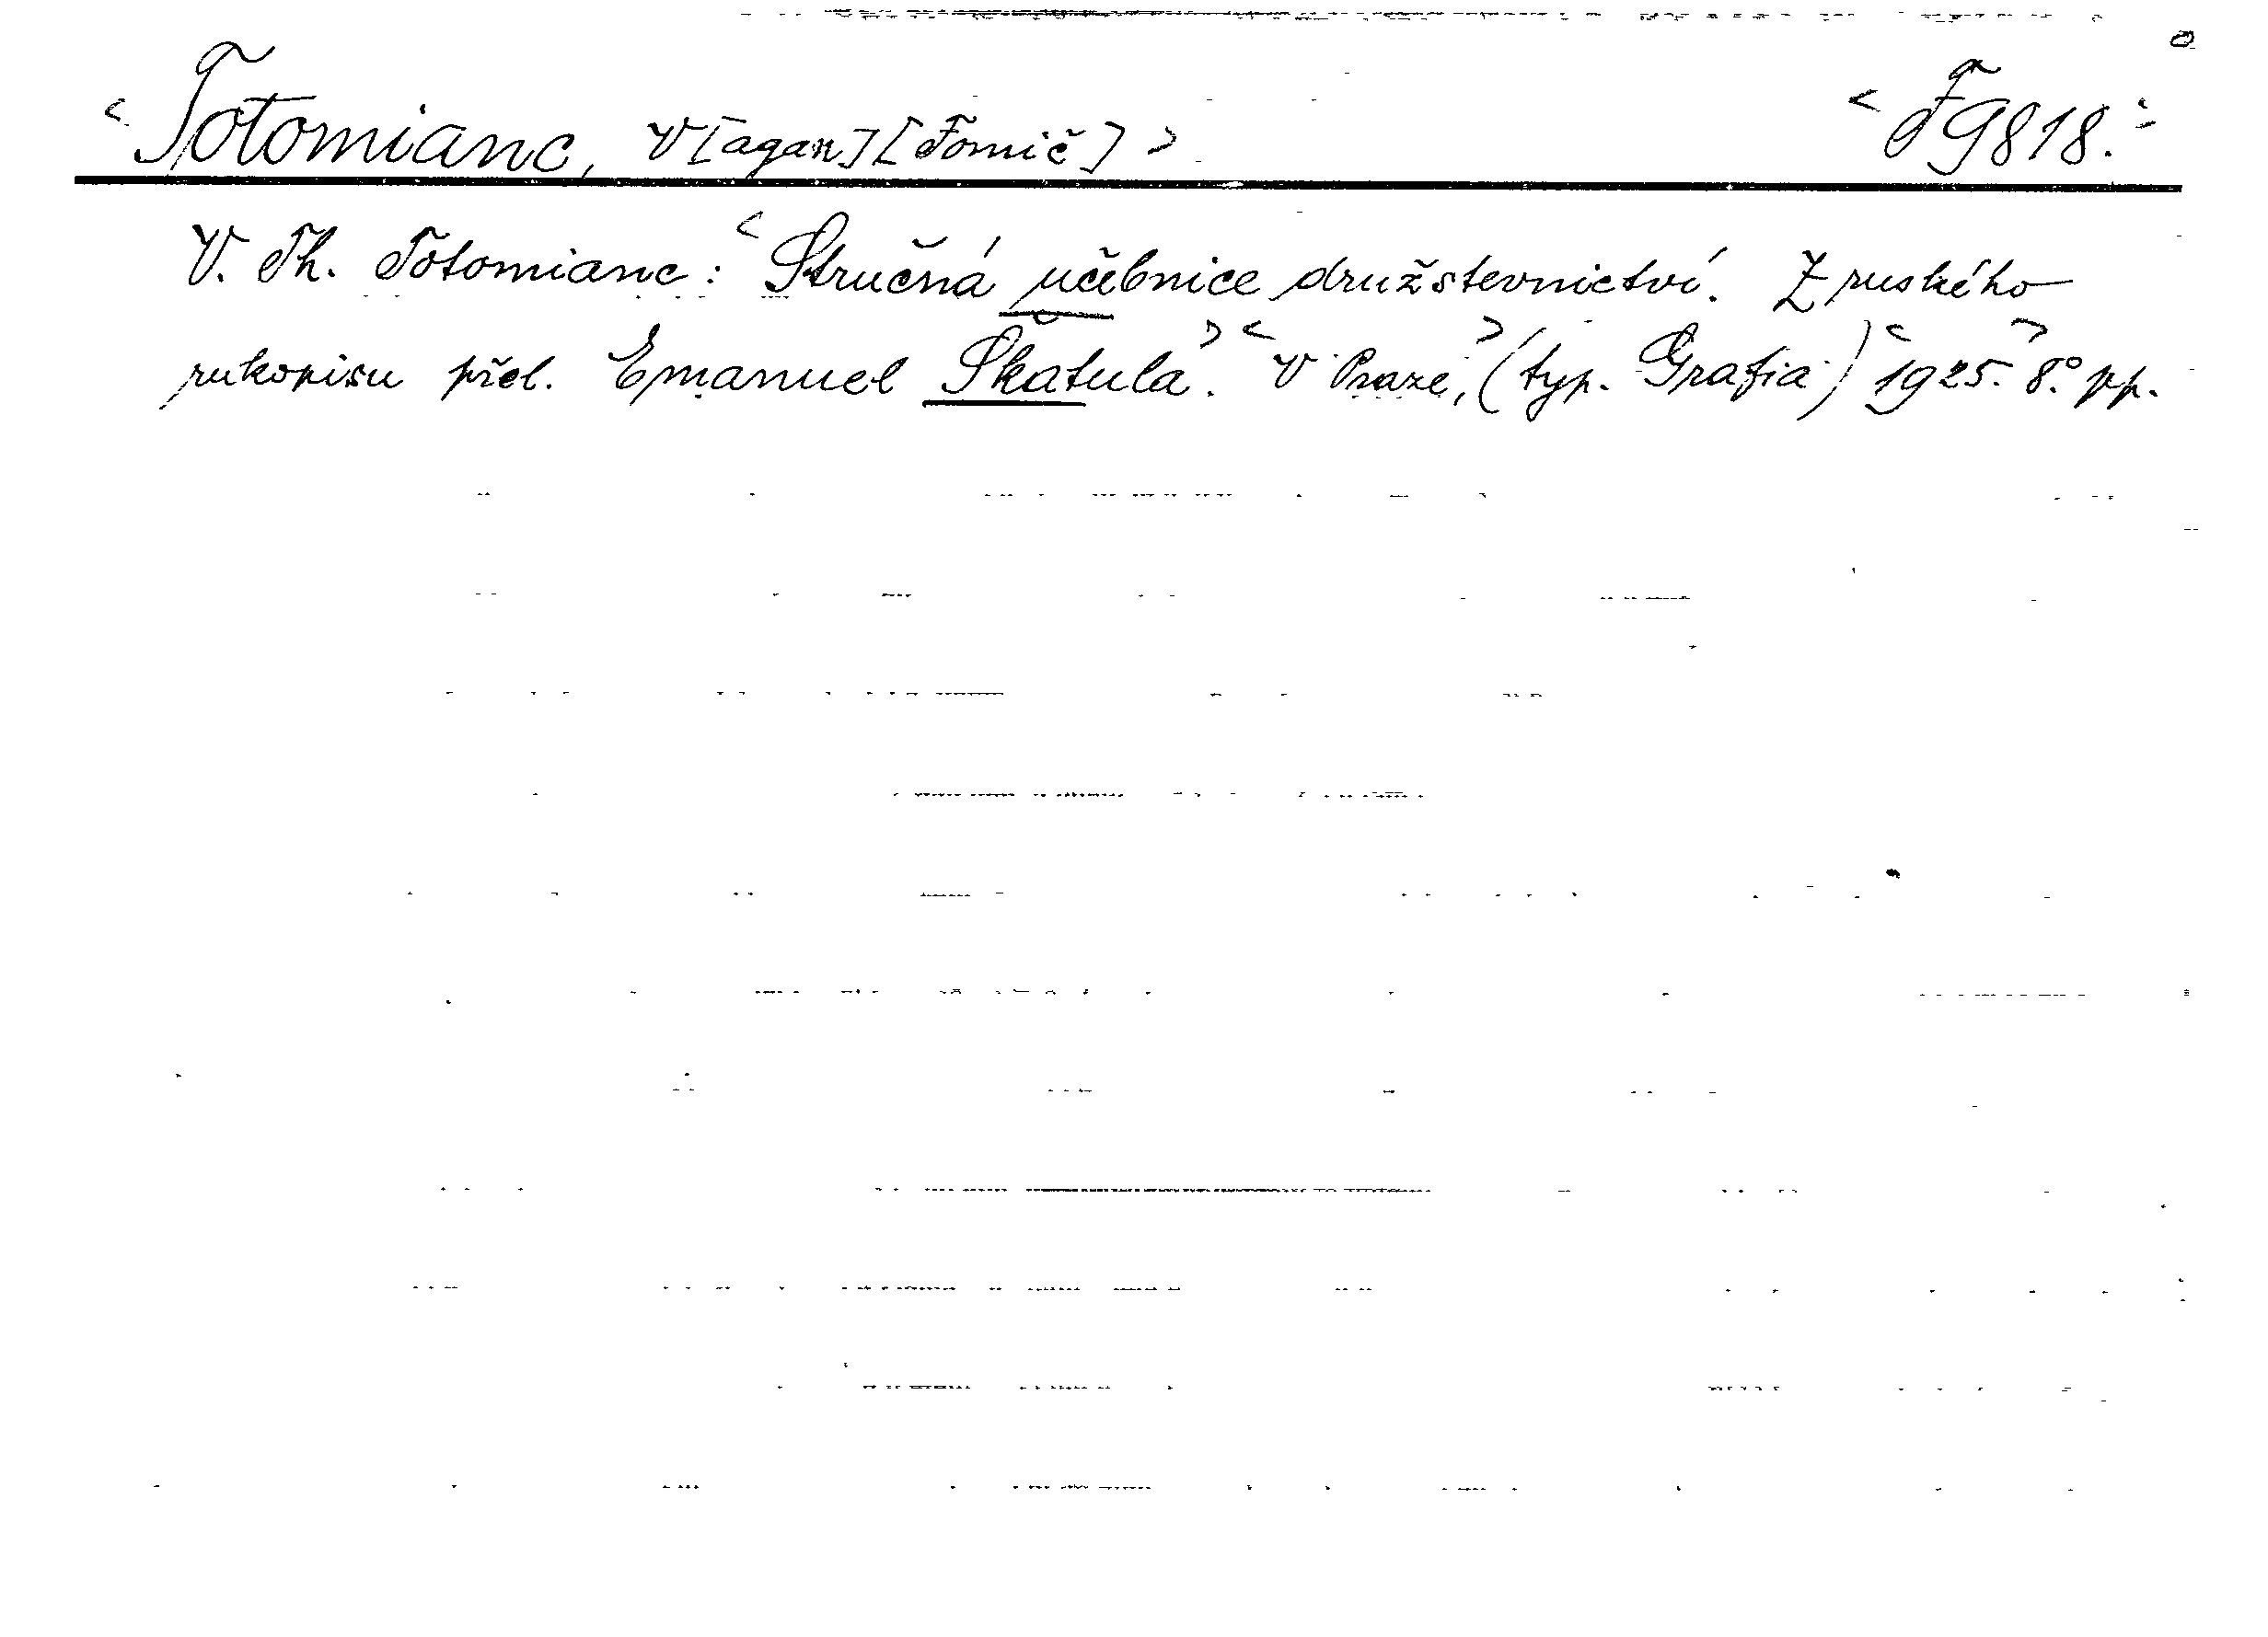 <Totomianc, V[agan] [Fomič]> <F 9818.>
V. Th. Totomianc: <Stručná učebnice družstevnictví. Z ruského
rukopisu přel. Emanuel Škatula.> <V Praze,> (typ. Grafia) <1925.> 8.° pp.